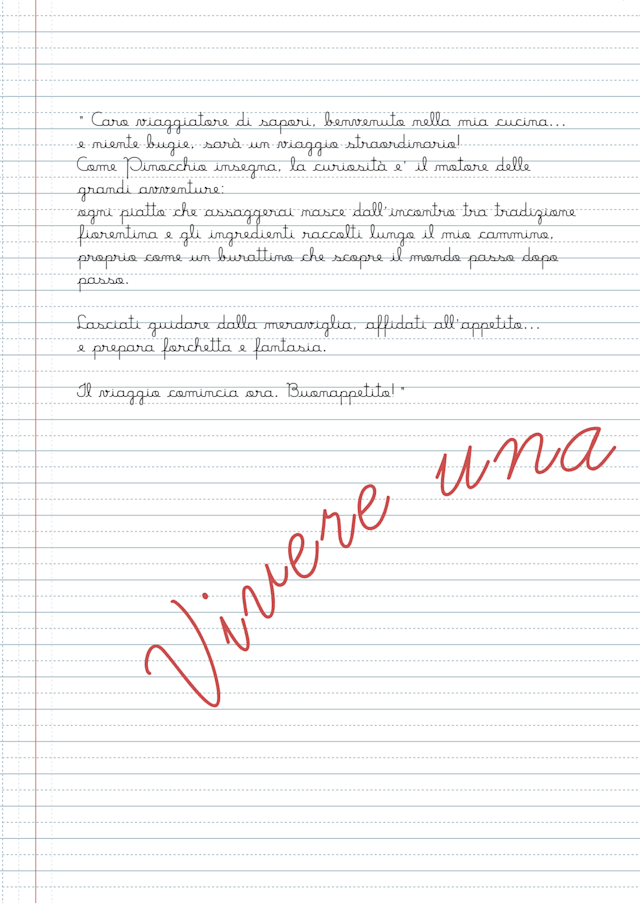 " Caro viaggiatore di sapori, benvenuto nella mia cucina...
e niente bugie, sarà un viaggio straordinario!
Come Pinocchio insegna, la curiosità e' il motore delle
grandi avventure:
ogni piatto che assaggerai nasce dall'incontro tra tradizione
fiorentina e gli ingredienti raccolti lungo il mio cammino,
proprio come un burattino che scopre il mondo passo dopo
passo.
Lasciati guidare dalla meraviglia, affidati all'appetito...
e prepara forchetta e fantasia.
Il viaggio comincia ora. Buonappetito! "
Vivere una